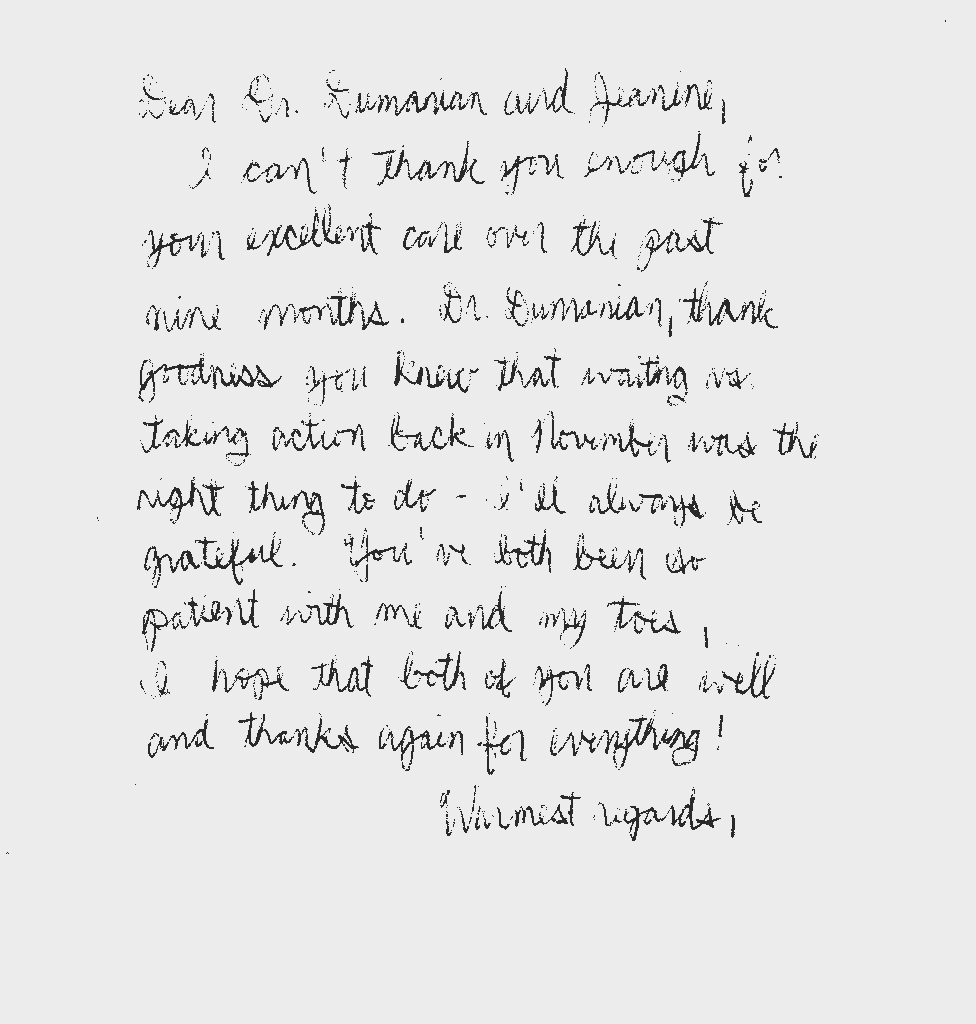 Dear Dr. Dumanian and Jeanine,
I can't thank you enough for
your excellent care over the past
nine months. Dr. Dumanian, thank
goodness you knew that waiting vs.
taking action back in November was the
right thing to do - I'll always be
grateful. You've both been so
patient with me and my toes,
I hope that both of you are well
and thanks again for everything!
Warmest regards,